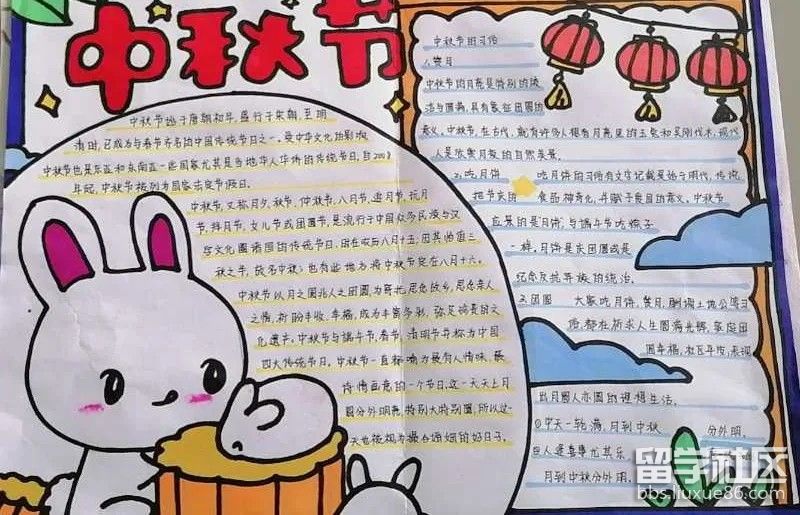 中秋节
中秋节始于唐朝初年,盛行于宋朝,至明
清时,已成为与春节齐名的中国传统节日之一。受中华文化的影响,
中秋节也是东亚和东南亚一些国家尤其是当地华人华侨的传统节日。自2008
年起,中秋节被列为国家法定节假日。
中秋节,又称月夕、秋节、仲秋节、八月节、追月节、玩月
节、拜月节、女儿节或团圆节,是流行于中国众多民族与汉
字文化圈诸国的传统节日,时在农历八月十五;因其恰值三
秋之半,故名中秋;也有些地方将中秋节定在八月十六。
中秋节以月之圆兆人之团圆,为寄托思念故乡,思念亲人
之情,祈盼丰收、幸福,成为丰富多彩、弥足珍贵的文
化遗产。中秋节与端午节、春节、清明节并称为中国
四大传统节日。中秋节一直都成为最有人情味、最
诗情画意的一个节日,这一天天上月
圆分外明亮,特别大特别圆,所以这一
天也被视为撮合姻缘的好日子。
中秋节的习俗
1.赏月
中秋节的月亮是特别的
洁与圆满,具有象征团圆的
意义。中秋节,在古代,就有许多人想有月亮里的玉兔和吴刚伐木,现代
人是欣赏月亮的自然美景。
2.吃月饼 吃月饼的习俗有文字记载是始于明代,传统
把节庆的 食品神奇化,并赋予良苦的意义。中秋节
应景的是月饼,与端午节吃粽子
一样,月饼是庆团圆或是
纪念反抗异族的统治。
3.团圆 大家吃月饼、赏月、酬谢土地公等习
俗,都在祈求人生圆满光辉,家庭团
圆幸福,社会平安,表词
出月圆人亦圆的理想生活。
①中天一轮满,月到中秋 分外明。
②人逢喜事尤其乐
月到中秋分外明。
留学社区
bbs.liuxue86.com